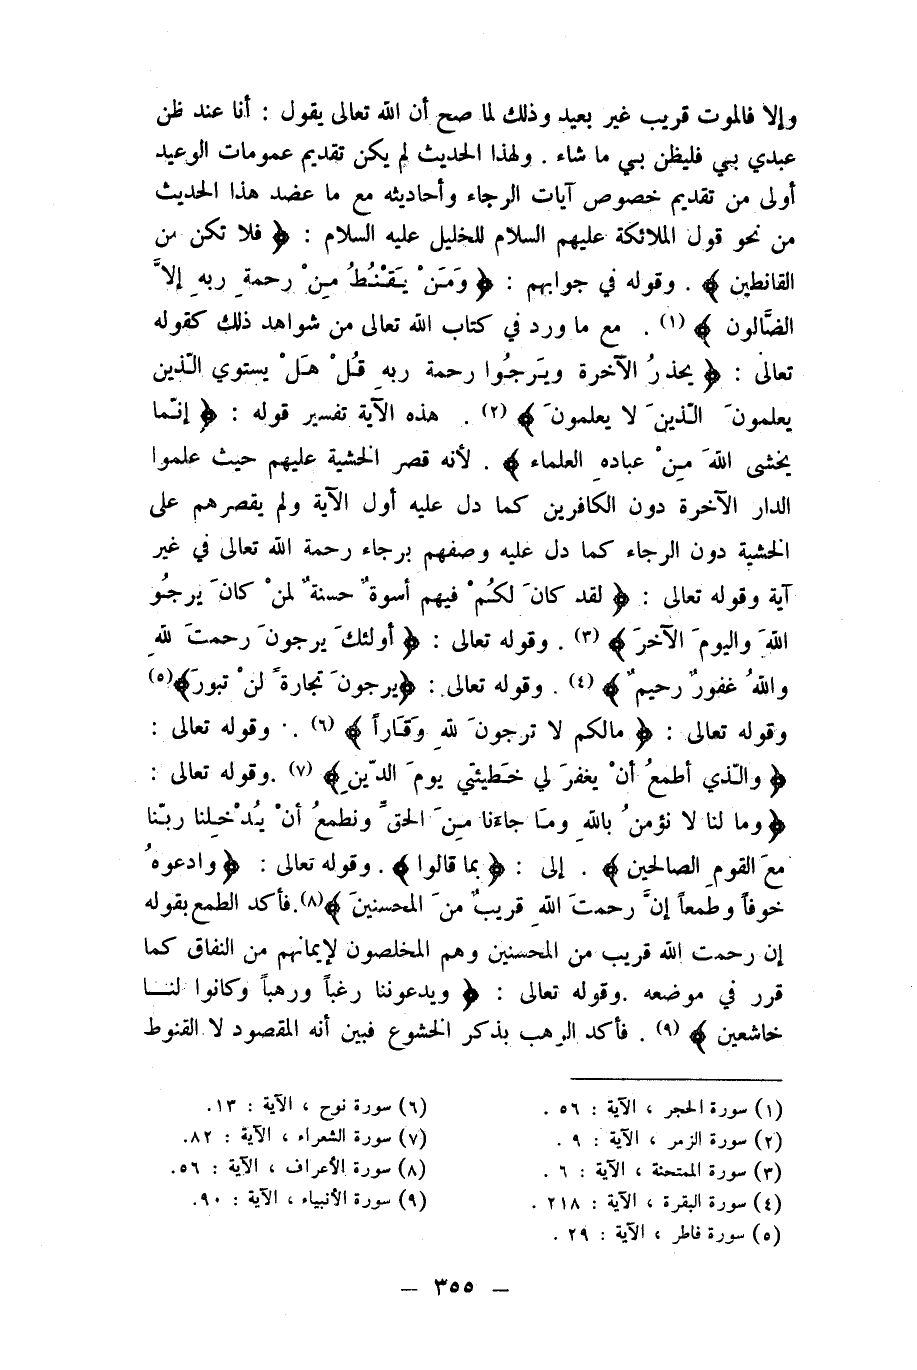 وإلا فالموت قريب غير بعيد وذلك لما صح أن الله تعالى يقول : أنا عند ظن
عبدي بي فليظن بي ما شاء . ولهذا الحديث لم يكن تقديم عمومات الوعيد
أولى من تقديم خصوص آيات الرجاء وأحاديثه مع ما عضد هذا الحديث
من نحو قول الملائكة عليهم السلام للخليل عليه السلام : ﴿ فلا تكن من
القانطين ﴾ . وقوله في جوابهم : ﴿ وَمَنْ يَقْنُطُ مِنْ رحمةِ ربهِ إلاَّ
الضَّالون ﴾ (١) . مع ما ورد في كتاب الله تعالى من شواهد ذلك كقوله
تعالى : ﴿ يحذرُ الآخرة ويَرجُوا رحمة ربهِ قُلْ هَلْ يستوي الّذين
يعلمونَ الّذينَ لا يعلمونَ ﴾ (٢) . هذه الآية تفسير قوله : ﴿ إنّما
يخشى اللهَ مِنْ عبادهِ العلماء ﴾ . لأنه قصر الخشية عليهم حيث علموا
الدار الآخرة دون الكافرين كما دل عليه أول الآية ولم يقصرهم على
الخشية دون الرجاء كما دل عليه وصفهم برجاء رحمة الله تعالى في غير
آية وقوله تعالى : ﴿ لقد كانَ لكُمْ فيهم أسوةٌ حسنةٌ لمنْ كانَ يرجُو
اللهَ واليومَ الآخرَ ﴾ (٣) . وقوله تعالى : ﴿ أولئكَ يرجونَ رحمتَ للهِ
واللهُ غفورٌ رحيمٌ ﴾ (٤) . وقوله تعالى : ﴿يرجونَ تجارةً لنْ تبورَ﴾(٥)
وقوله تعالى : ﴿ مالكم لا ترجونَ للهِ وَقَاراً ﴾ (٦) . وقوله تعالى :
﴿ والّذي أطمعُ أنْ يغفرَ لي خَطيئتي يومَ الدّينِ ﴾ (٧) .وقوله تعالى :
﴿ وما لنا لا نؤمنُ باللهِ ومَا جاءَنا مِنَ الحقِّ ونطمعُ أنْ يُدْخِلنا ربّنا
معَ القومِ الصالحين ﴾ . إلى : ﴿ بما قالوا ﴾ . وقوله تعالى : ﴿ وادعوهُ
خوفاً وطمعاً إنَّ رحمتَ اللهِ قريبٌ منَ المحسنينَ ﴾(٨).فأكد الطمع بقوله
إن رحمت الله قريب من المحسنين وهم المخلصون لإيمانهم من النفاق كما
قرر في موضعه .وقوله تعالى : ﴿ ويدعوننا رغباً ورهباً وكانوا لنا
خاشعين ﴾ (٩) . فأكد الرهب بذكر الخشوع فبين أنه المقصود لا القنوط
(١) سورة الحجر ، الآية : ٥٦ .
(٢) سورة الزمر ، الآية : ٩ .
(٣) سورة الممتحنة ، الآية : ٦ .
(٤) سورة البقرة ، الآية : ٢١٨ .
(٥) سورة فاطر ، الآية : ٢٩ .
(٦) سورة نوح ، الآية : ١٣.
(٧) سورة الشعراء ، الآية : ٨٢.
(٨) سورة الأعراف ، الآية : ٥٦.
(٩) سورة الأنبياء ، الآية : ٩٠.
– ٣٥٥ –